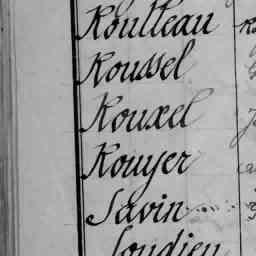 Roulleau
Roussel
Rouxel
Rouyer
Savin